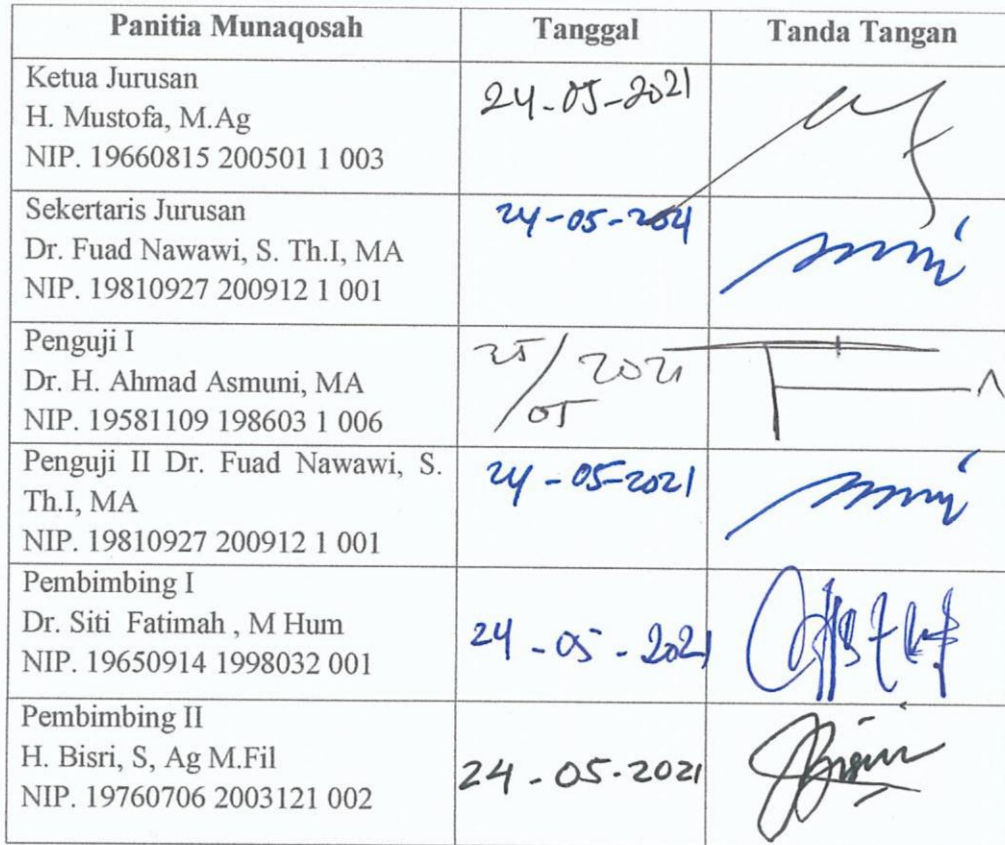 Panitia Munaqosah Tanggal Tanda Tangan
Ketua Jurusan
H. Mustofa, M.Ag
NIP. 19660815 200501 1 003
24-05-2021
Sekertaris Jurusan
Dr. Fuad Nawawi, S. Th.I, MA
NIP. 19810927 200912 1 001
24-05-2021
Penguji I
Dr. H. Ahmad Asmuni, MA
NIP. 19581109 198603 1 006
25/05 2021
Penguji II Dr. Fuad Nawawi, S.
Th.I, MA
NIP. 19810927 200912 1 001
24-05-2021
Pembimbing I
Dr. Siti Fatimah , M Hum
NIP. 19650914 1998032 001
24-05-2021
Pembimbing II
H. Bisri, S, Ag M.Fil
NIP. 19760706 2003121 002
24-05-2021